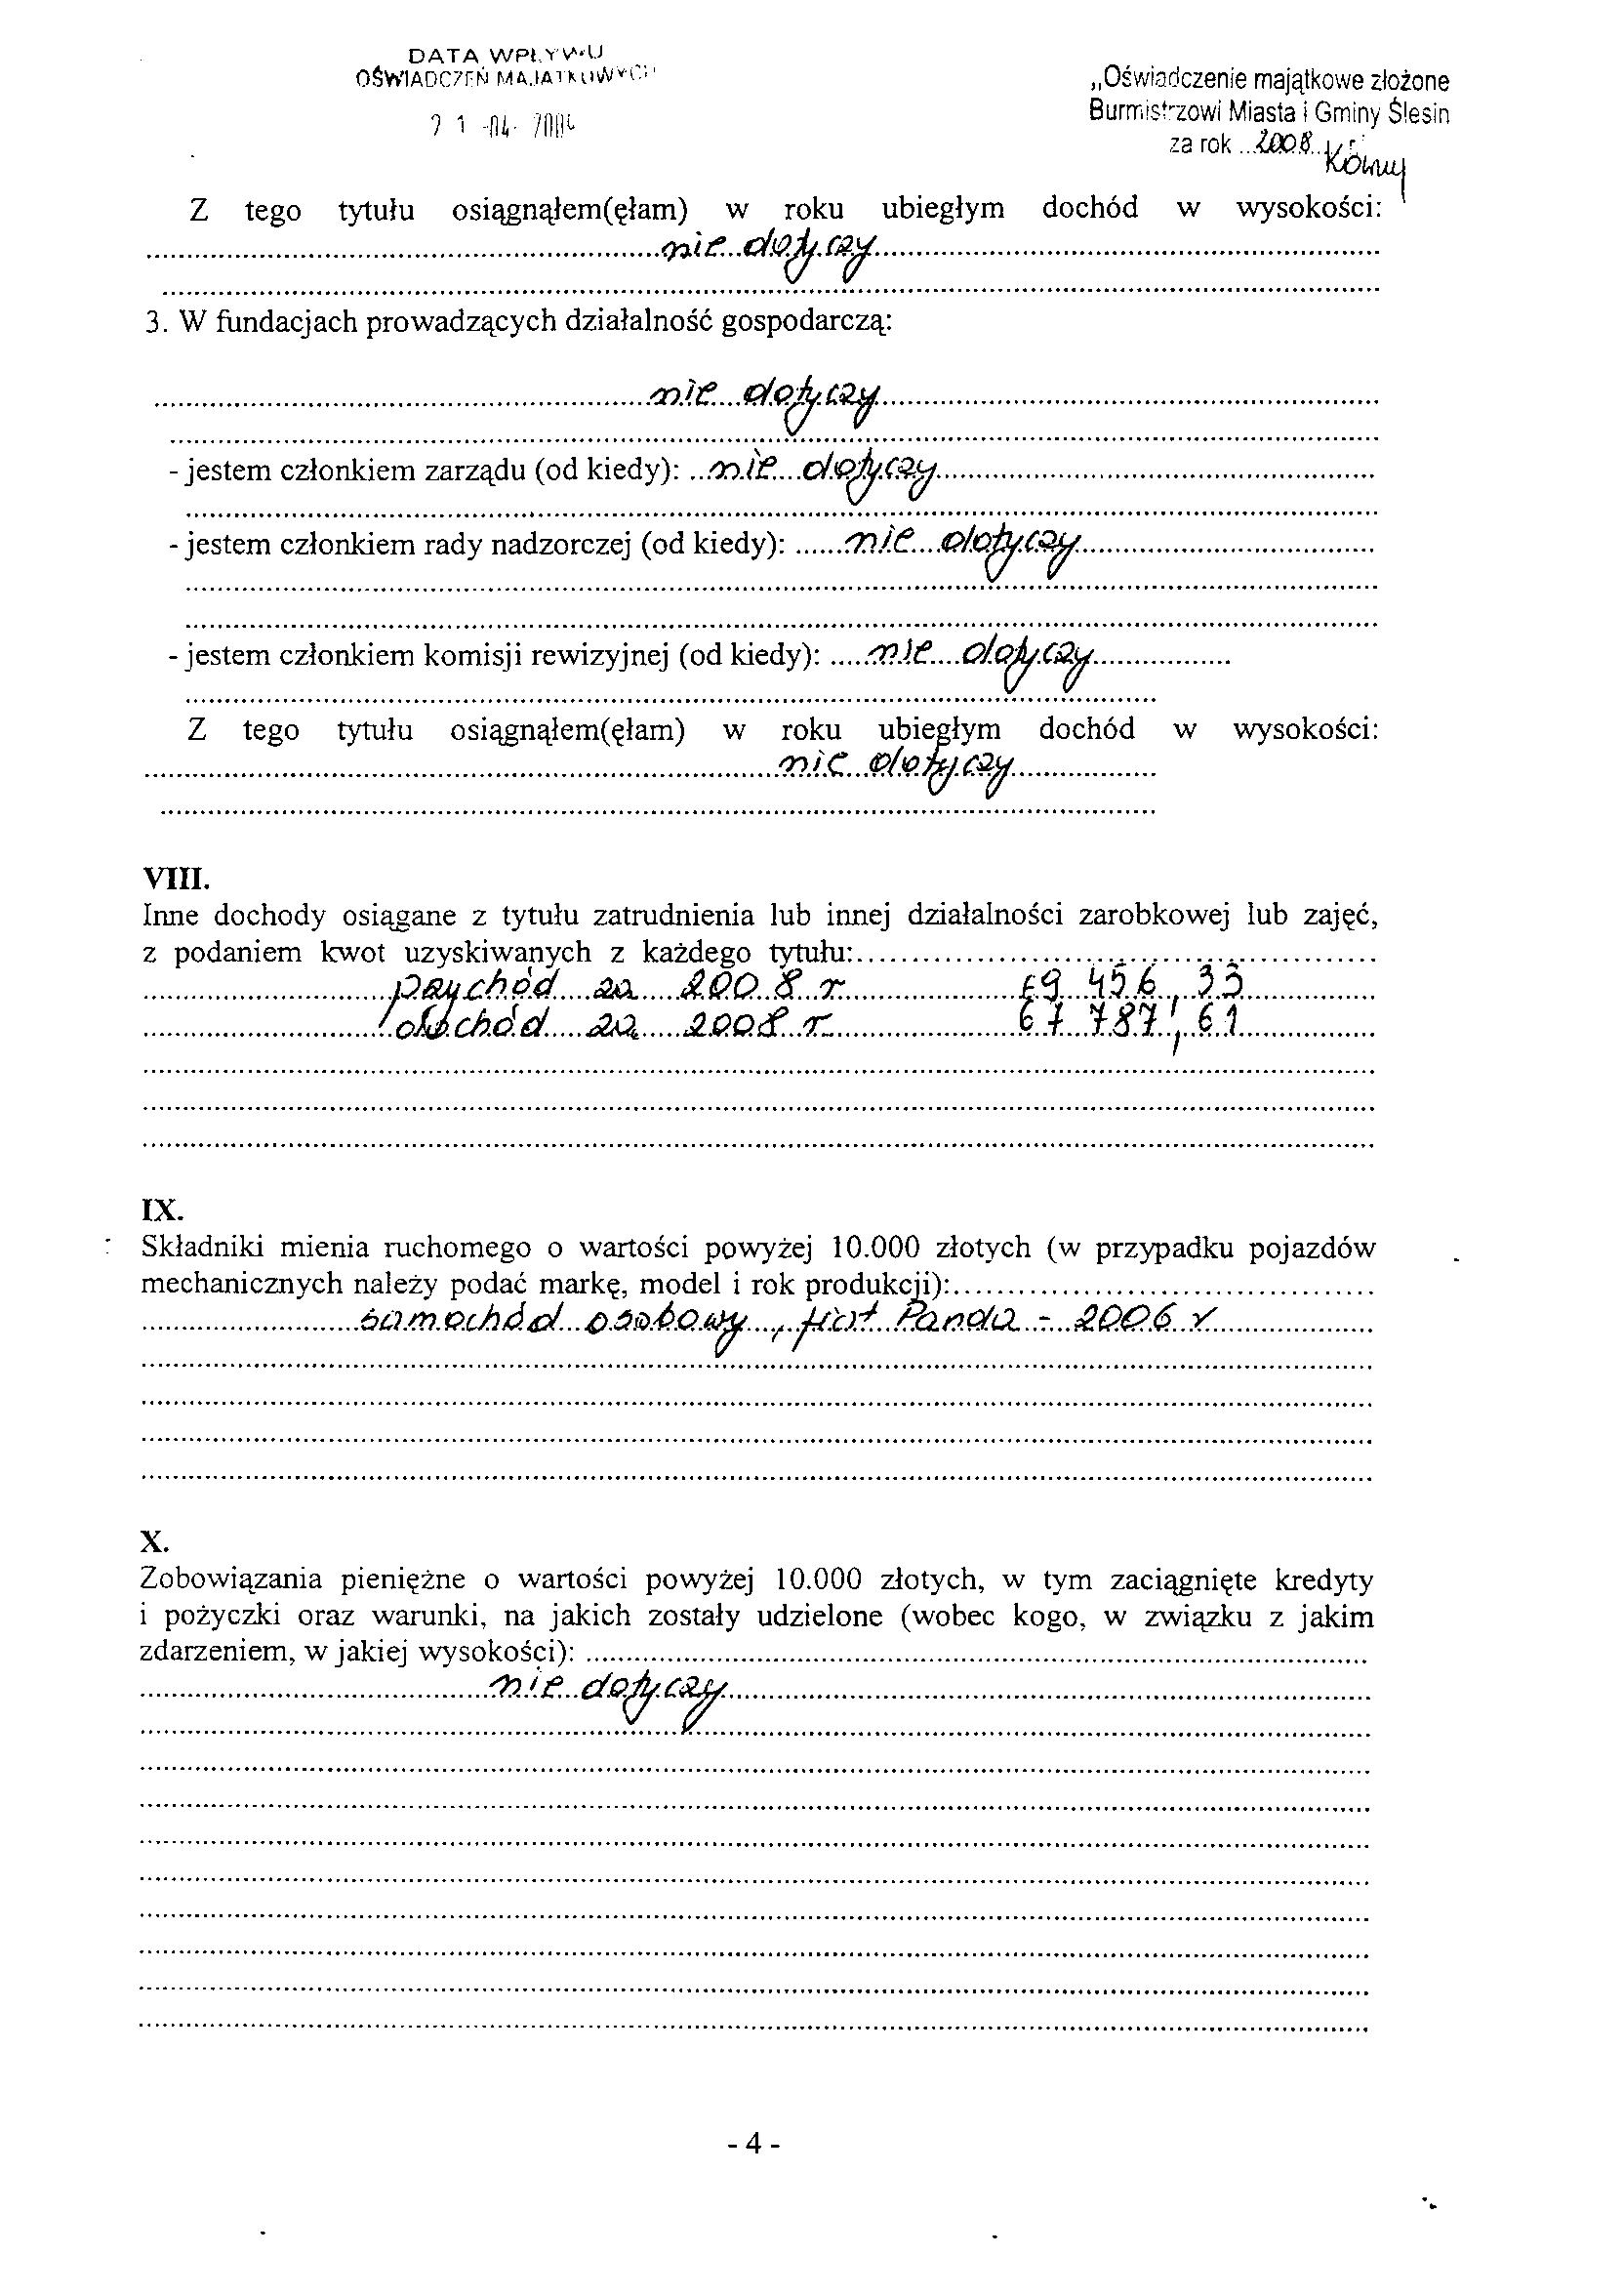 DATA WPŁYWU
OŚWIADCZEŃ MAJĄTKOWYCH
21 -04-
„Oświadczenie majątkowe złożone
Burmistrzowi Miasta i Gminy Ślesin
za rok ..2008..
Z tego tytułu osiągnąłem(ęłam) w roku ubiegłym dochód w wysokości:
nie dotyczy
3. W fundacjach prowadzących działalność gospodarczą:
nie dotyczy
- jestem członkiem zarządu (od kiedy): nie dotyczy
- jestem członkiem rady nadzorczej (od kiedy): nie dotyczy
- jestem członkiem komisji rewizyjnej (od kiedy): nie dotyczy
Z tego tytułu osiągnąłem(ęłam) w roku ubiegłym dochód w wysokości:
nie dotyczy
VIII.
Inne dochody osiągane z tytułu zatrudnienia lub innej działalności zarobkowej lub zajęć,
z podaniem kwot uzyskiwanych z każdego tytułu:
przychód za 2008 r 69 456,33
dochód za 2008 r 67 787,61
IX.
Składniki mienia ruchomego o wartości powyżej 10.000 złotych (w przypadku pojazdów
mechanicznych należy podać markę, model i rok produkcji):
samochód osobowy, fiat Panda - 2006 r
X.
Zobowiązania pieniężne o wartości powyżej 10.000 złotych, w tym zaciągnięte kredyty
i pożyczki oraz warunki, na jakich zostały udzielone (wobec kogo, w związku z jakim
zdarzeniem, w jakiej wysokości):
nie dotyczy
- 4 -